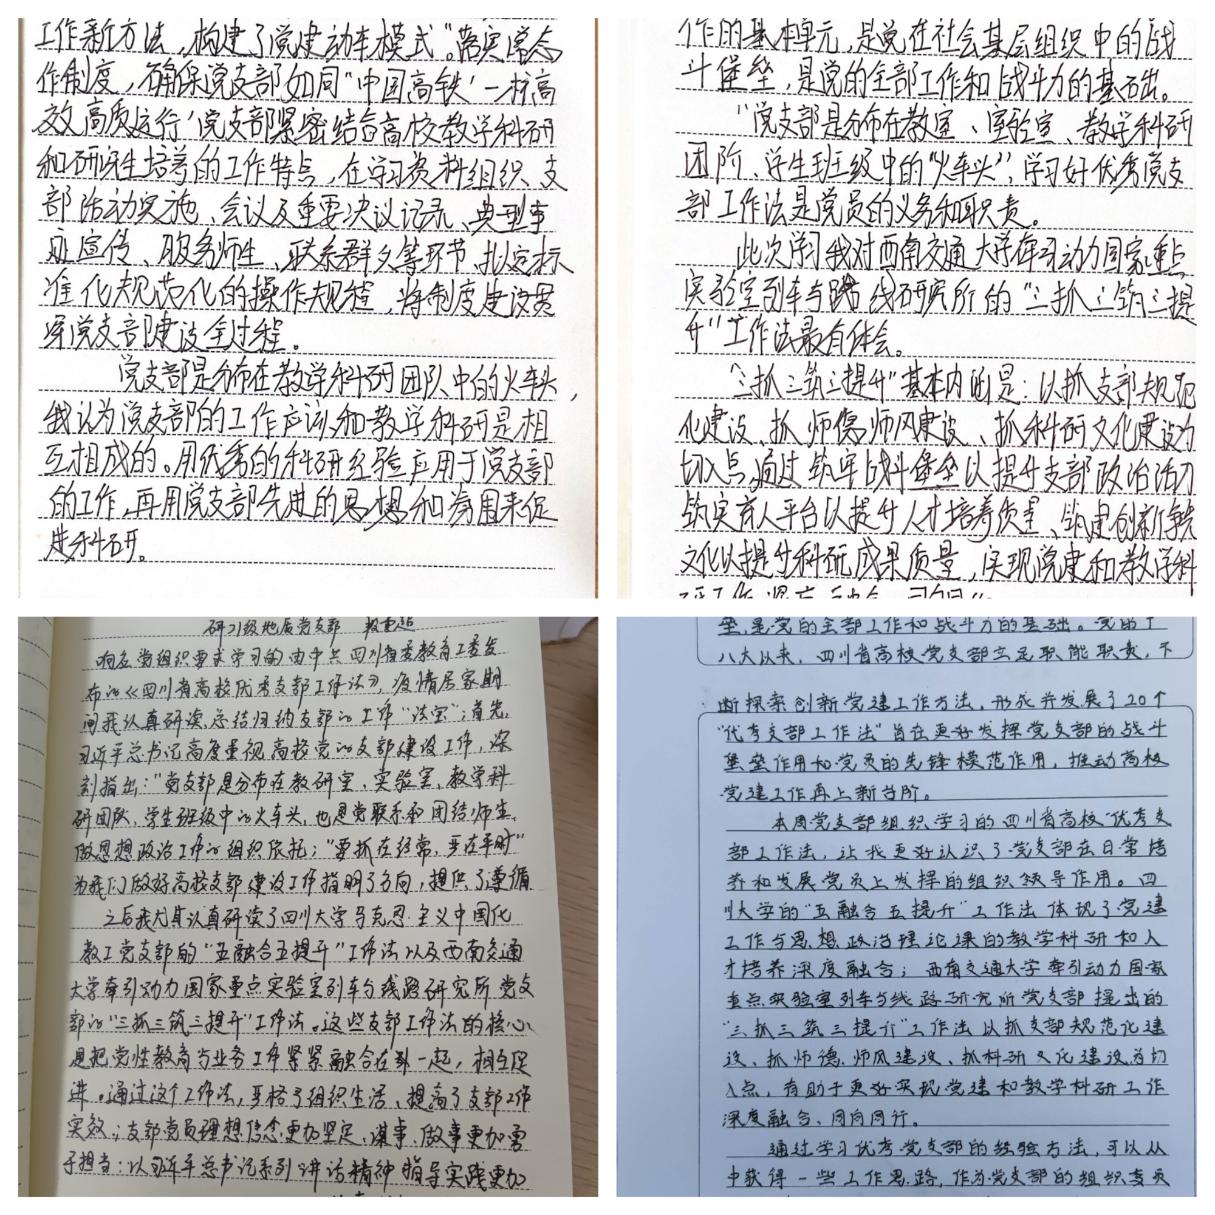 工作新方法，构建了党建动车模式"。落实常态
作制度，确保党支部如同"中国高铁"一样高
效高质运行，党支部紧密结合高校教学科研
和研究生培养的工作特点，在学习资料组织、支
部活动实施、会议及重要决议记录、典型事
迹宣传、服务师生、联系群众等环节、拟定标
准化规范化的操作规程，将制度建设贯
穿党支部建设全过程。
党支部是分布在教学科研团队中的火车头，
我认为党支部的工作应该和教学科研是相
互相成的。用优秀的科研经验应用于党支部
的工作，再用党支部先进的思想和氛围来促
进科研。
作的基本单元，是党在社会基层组织中的战
斗堡垒，是党的全部工作和战斗力的基础。
"党支部是分布在教室、实验室、教学科研
团队、学生班级中的"火车头"，学习好优秀党支
部工作法是党员的义务和职责。
此次学习我对西南交通大学牵引动力国家重点
实验室列车与线路研究所的"三抓三筑三提
升"工作法最有体会。
"三抓三筑三提升"基本内涵是：以抓支部规范
化建设、抓师德师风建设、抓科研文化建设为
切入点，通过筑牢战斗堡垒以提升支部政治活力
筑实育人平台以提升人才培养质量、筑建创新争先
文化以提升科研成果质量，实现党建和教学科
研级地质党支部
响应党组织要求学习的由中共四川省委教育工委发
布的《四川省高校优秀支部工作法》，疫情居家期
间我认真研读总结归纳支部的工作"法宝"：首先，
习近平总书记高度重视高校党的支部建设工作，深
刻指出："党支部是分布在教研室、实验室、教学科
研团队、学生班级中的火车头，也是党联系和团结师生、
做思想政治工作的组织依托；"要抓在经常，要在平时"
为我们做好高校支部建设工作指明了方向，提供了遵循
之后我尤其认真研读了四川大学马克思主义中国化
教工党支部的"五融合五提升"工作法以及西南交通
大学牵引动力国家重点实验室列车与线路研究所党支
部的"三抓三筑三提升"工作法。这些支部工作法的核心
是把党性教育与业务工作紧紧融合在到一起，相互促
进。通过这个工作法，严格了组织生活、提高了支部工作
实效；支部党员理想信念更加坚定、谋事、做事更加勇
于担当；以习近平总书记系列讲话精神指导实践更加
垒，是党的全部工作和战斗力的基础。党的十
八大以来，四川省高校党支部立足职能职责，不
断探索创新党建工作方法，形成并发展了20个
"优秀支部工作法"旨在更好发挥党支部的战斗
堡垒作用和党员的先锋模范作用，推动高校
党建工作再上新台阶。
本周党支部组织学习的四川省高校"优秀支
部工作法，让我更好认识了党支部在日常培
养和发展党员上发挥的组织领导作用。四
川大学的"五融合五提升"工作法体现了党建
工作与思想政治理论课的教学科研和人
才培养深度融合；西南交通大学牵引动力国家
重点实验室列车与线路研究所党支部提出的
"三抓三筑三提升"工作法以抓支部规范化建
设、抓师德、师风建设、抓科研文化建设为切
入点，有助于更好实现党建和教学科研工作
深度融合、同向同行。
通过学习优秀党支部的经验方法，可以从
中获得一些工作思路，作为党支部的组织委员